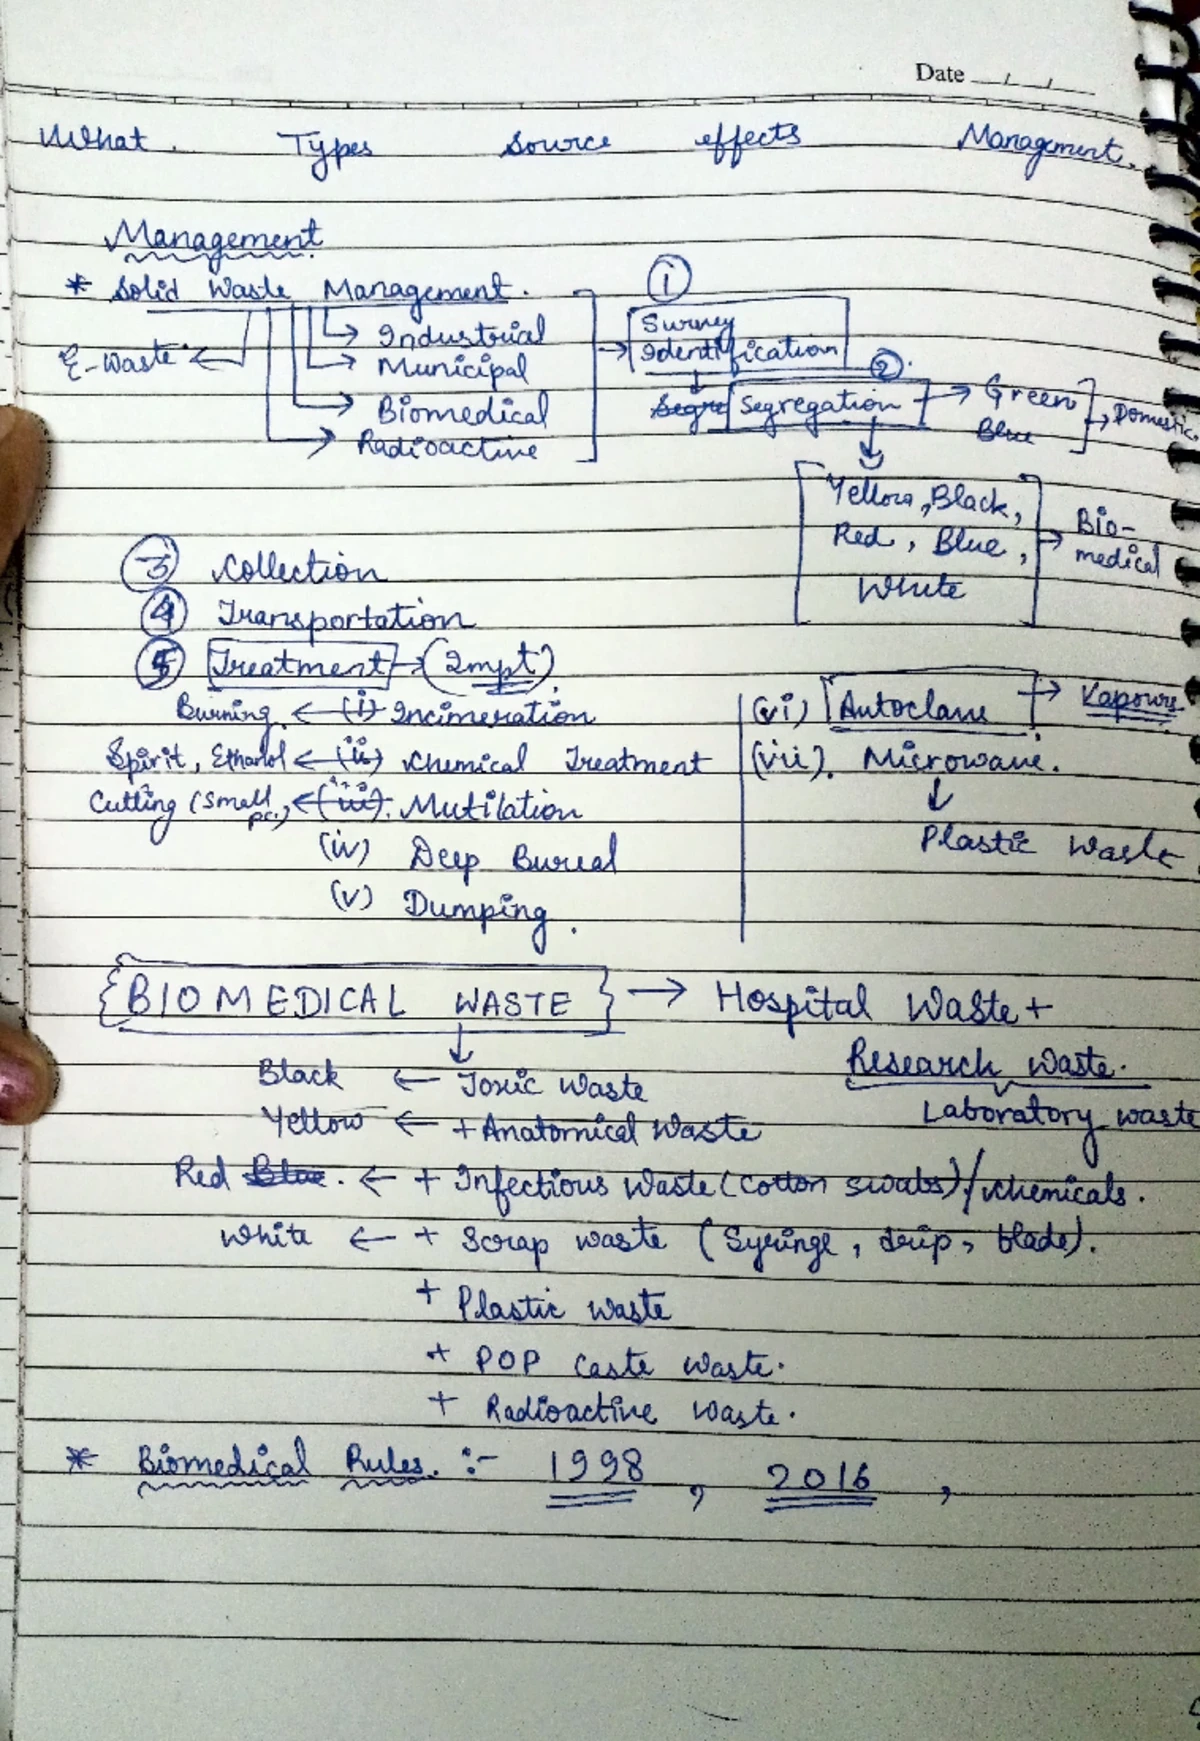 Date __/__/__
What. Types Source effects Management.
Management.
* Solid Waste Management.
①
Industrial
Survey
E-Waste
Municipal
Identification
②.
Biomedical
Segre Segregation → Green
Blue
→ Domestic.
Radioactive
Yellow, Black,
Red, Blue,
White
→ Bio-
medical
③ Collection
④ Transportation
⑤ Treatment → (2mpt)
Burning. ← (i) Incineration
Spirit, Ethanol ← (ii) Chemical Treatment
Cutting (Small pc.) ← (iii). Mutilation
(iv) Deep Bureal
(v) Dumping.
(vi) Autoclave → Vapours
(vii). Microwave.
↓
Plastic Waste
{BIOMEDICAL WASTE} → Hospital Waste +
Research Waste.
Laboratory waste
Black ← Toxic Waste
Yellow ← + Anatomical Waste
Red Blue. ← + Infectious Waste (cotton swabs)/chemicals.
White ← + Scrap waste (Syringe, drip, blade).
+ Plastic waste
+ POP Caste Waste.
+ Radioactive Waste.
* Biomedical Rules. :- 1998, 2016,